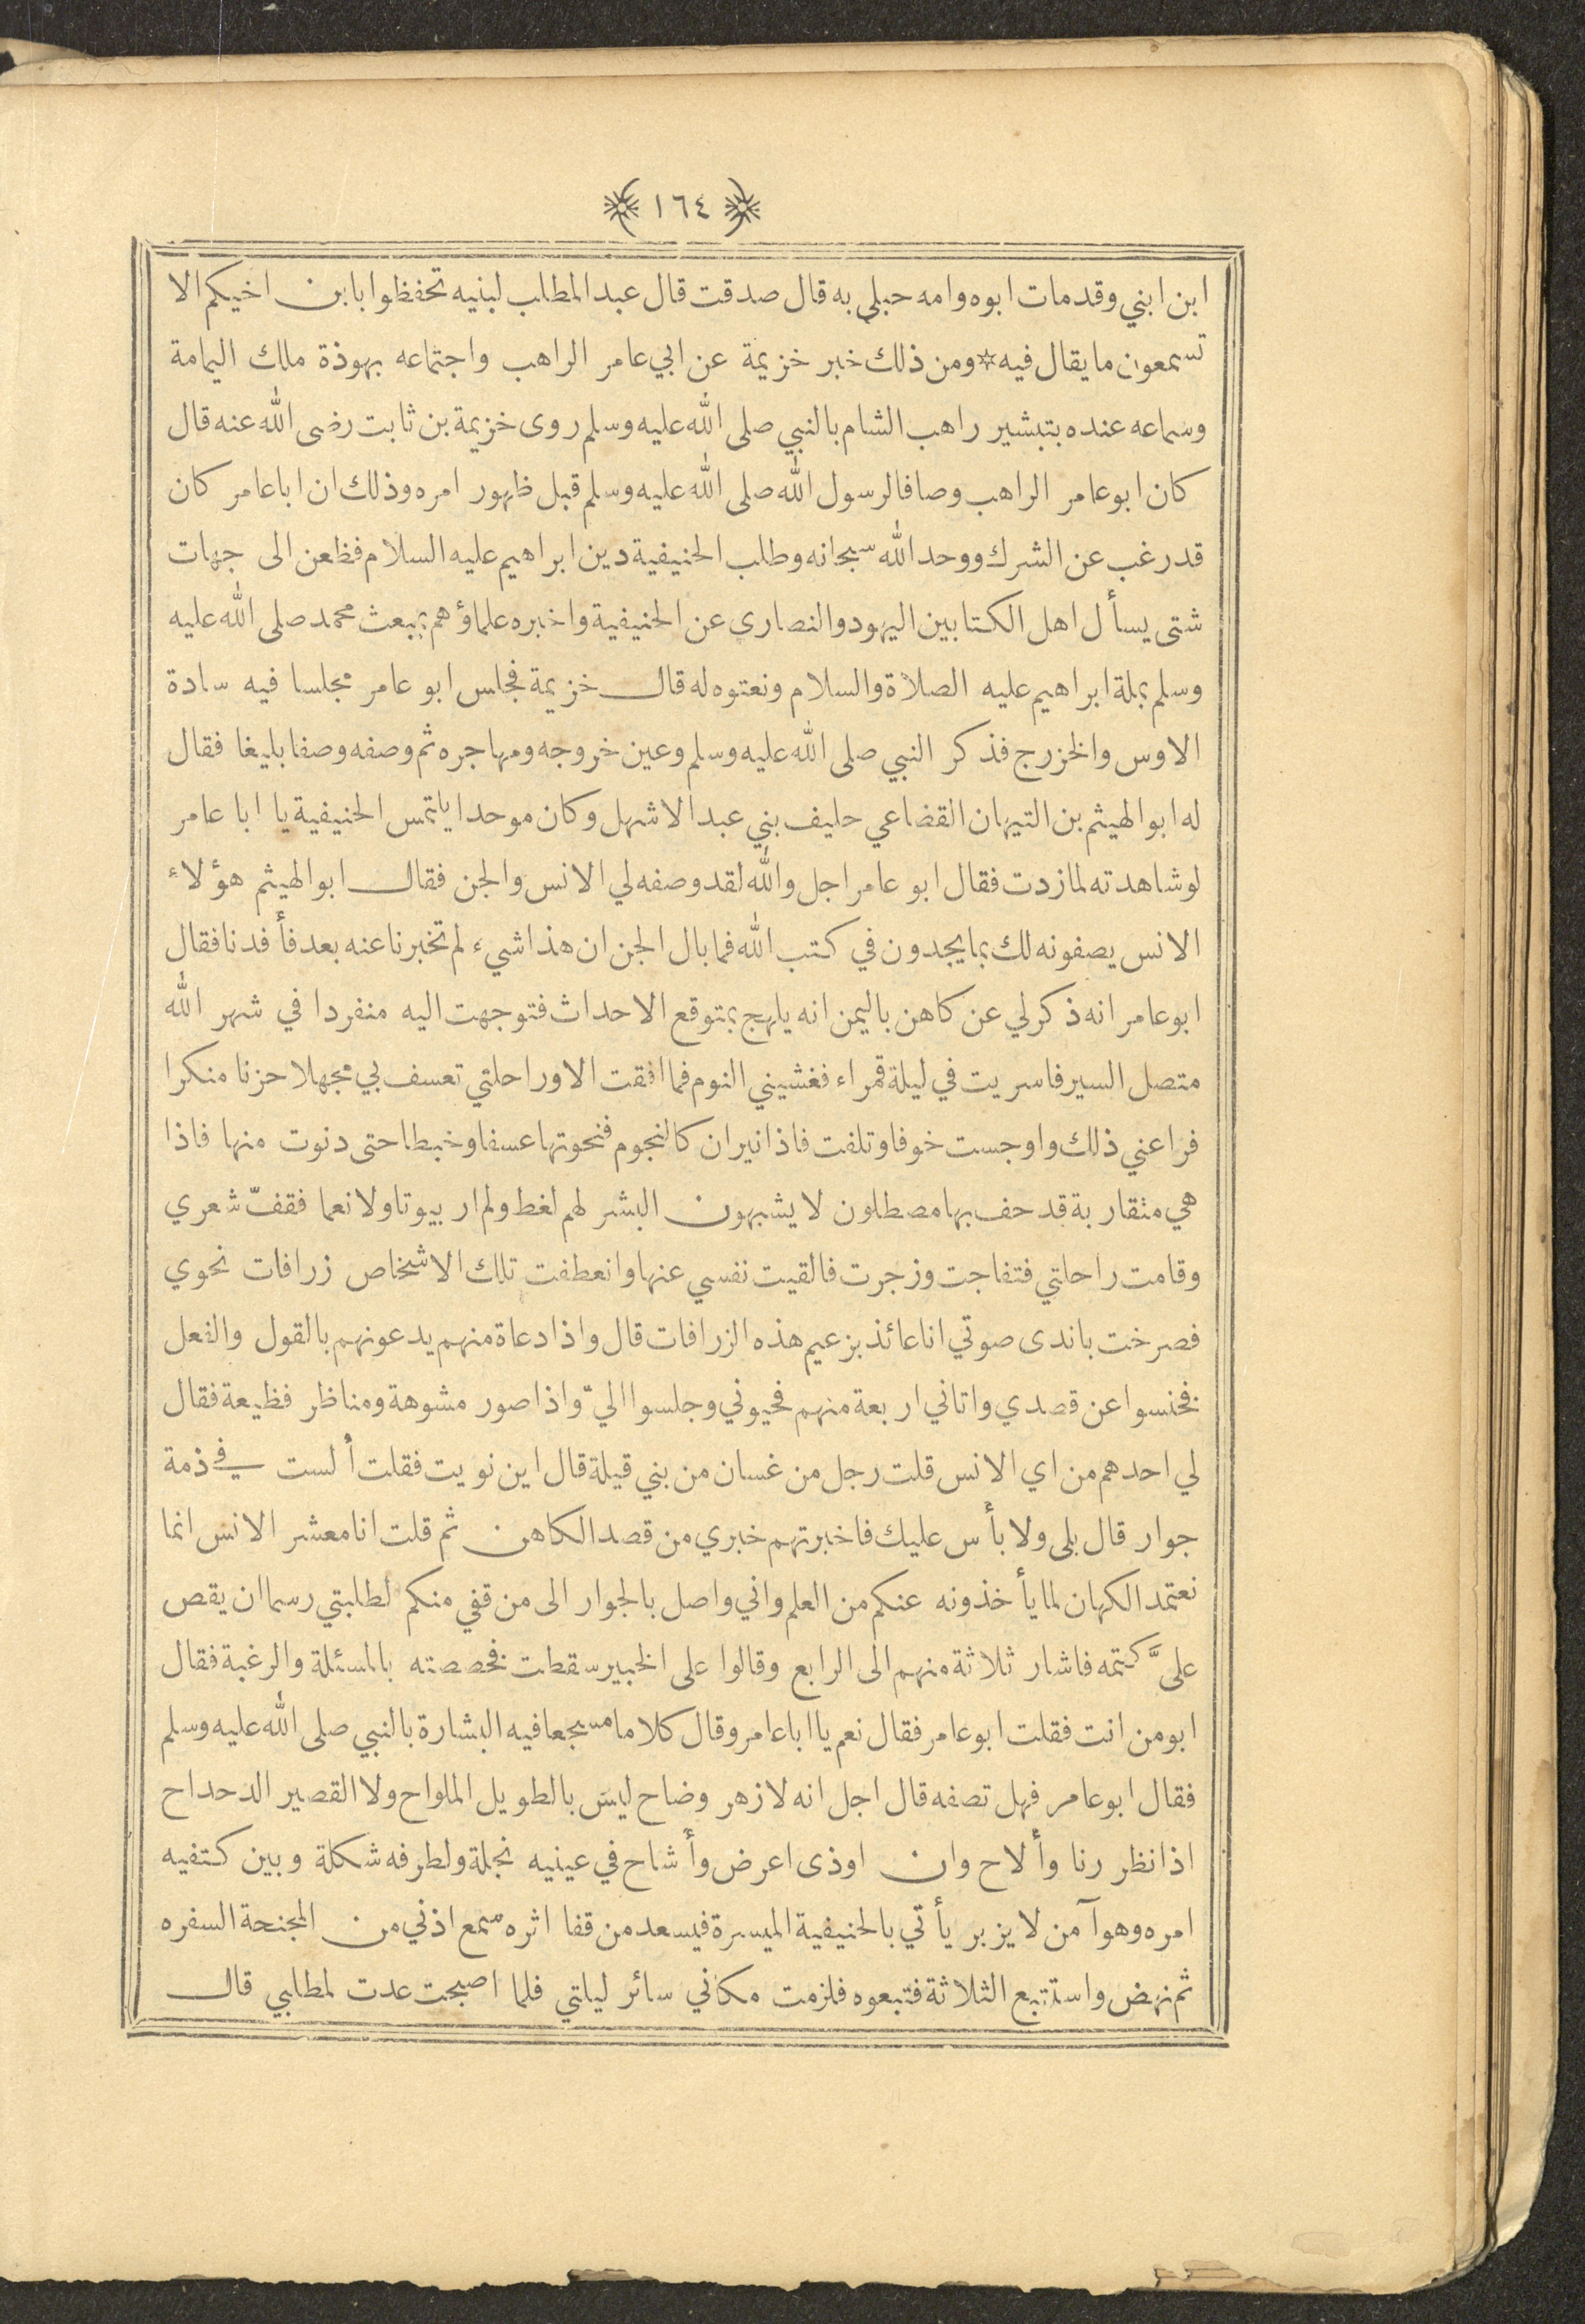 ١٦٤
ابن ابني وقد مات ابوه وامه حبلى به قال صدقت قال عبد المطلب لبنيه تحفظوا بابن اخيكم الا
تسمعون ما يقال فيه ☆ ومن ذلك خبر خزيمة عن ابي عامر الراهب واجتماعه بهوذة ملك اليمامة
وسماعه عنده بتبشير راهب الشام بالنبي صلى الله عليه وسلم روى خزيمة بن ثابت رضى الله عنه قال
كان ابو عامر الراهب وصافا لرسول الله صلى الله عليه وسلم قبل ظهور امره وذلك ان ابا عامر كان
قد رغب عن الشرك ووحد الله سبحانه وطلب الحنيفية دين ابراهيم عليه السلام فظعن الى جهات
شتى يسأل اهل الكتابين اليهود والنصارى عن الحنيفية واخبره علماؤهم بمبعث محمد صلى الله عليه
وسلم بملة ابراهيم عليه الصلاة والسلام ونعتوه له قال خزيمة فجلس ابو عامر مجلسا فيه سادة
الاوس والخزرج فذكر النبي صلى الله عليه وسلم وعين خروجه ومهاجره ثم وصفه وصفا بليغا فقال
له ابو الهيثم بن التيهان القضاعي حليف بني عبد الاشهل وكان موحدا يلتمس الحنيفية يا ابا عامر
لو شاهدته لما زدت فقال ابو عامر اجل والله لقد وصفه لي الانس والجن فقال ابو الهيثم هؤلاء
الانس يصفونه لك بما يجدون في كتب الله فما بال الجن ان هذا شيء لم تخبرنا عنه بعد فأفدنا فقال
ابو عامر انه ذكر لي عن كاهن باليمن انه يلهج بمتوقع الاحداث فتوجهت اليه منفردا في شهر الله
متصل السير فاسريت في ليلة قمراء فغشيني النوم فما افقت الا وراحلتي تعسف بي مجهلا حزنا منكرا
فراعني ذلك واوجست خوفا وتلفت فاذا نيران كالنجوم فنحوتها عسفا وخبطا حتى دنوت منها فاذا
هي متقاربة قد حف بها مصطلون لا يشبهون البشر لهم لغط ولم ار بيوتا ولا نعما فقفّ شعري
وقامت راحلتي فتفاجت وزجرت فالقيت نفسي عنها وانعطفت تلك الاشخاص زرافات نحوي
فصرخت باندى صوتي انا عائذ بزعيم هذه الزرافات قال واذا دعاة منهم يدعونهم بالقول والفعل
فخنسوا عن قصدي واتاني اربعة منهم فحيوني وجلسوا اليّ واذا صور مشوهة ومناظر فظيعة فقال
لي احدهم من اي الانس قلت رجل من غسان من بني قيلة قال اين نويت فقلت ألست في ذمة
جوار قال بلى ولا بأس عليك فاخبرتهم خبري من قصد الكاهن ثم قلت انا معشر الانس انما
نعتمد الكهان لما يأخذونه عنكم من العلم واني واصل بالجوار الى من قفي منكم لطلبتي رسما ان يقص
علىَّ كتمه فاشار ثلاثة منهم الى الرابع وقالوا على الخبير سقطت فخصصته بالمسئلة والرغبة فقال
ابو من انت فقلت ابو عامر فقال نعم يا ابا عامر وقال كلاما مسجعا فيه البشارة بالنبي صلى الله عليه وسلم
فقال ابو عامر فهل تصفه قال اجل انه لازهر وضاح ليس بالطويل الملواح ولا القصير الدحداح
اذا نظر رنا وألاح وان اوذى اعرض وأشاح في عينيه نجلة ولطرفه شكلة وبين كتفيه
امره وهو آمن لا يزبر يأتي بالحنيفية الميسرة فيسعد من قفا اثره سمع اذني من المجنحة السفره
ثم نهض واستتبع الثلاثة فتبعوه فلزمت مكاني سائر ليلتي فلما اصبحت عدت لمطلبي قال